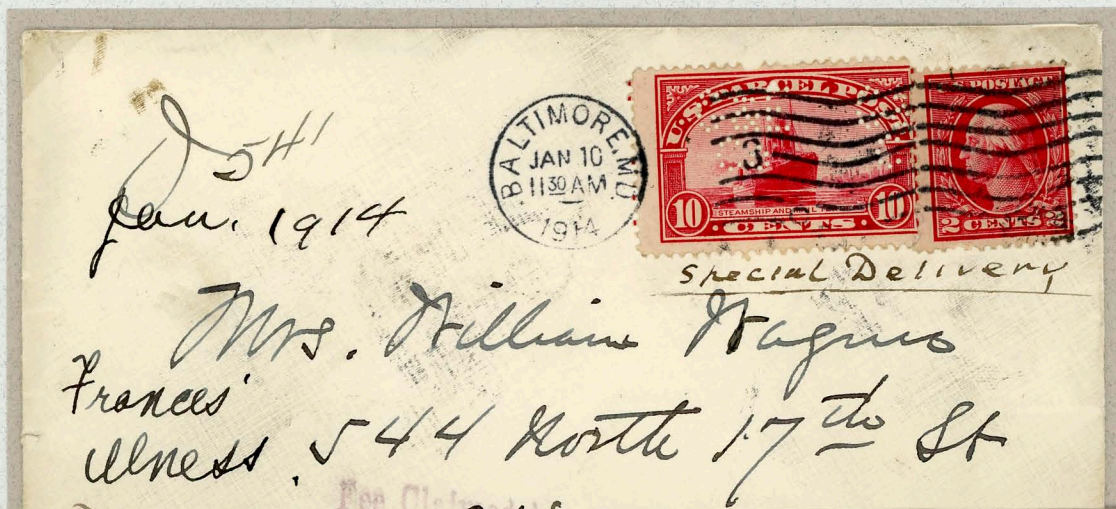 541
Jan. 1914
BALTIMORE, MD.
JAN 10
11 30 AM
1914
U.S. PARCEL POST
3
10 STEAMSHIP AND 10
CENTS
U.S. POSTAGE
2 CENTS 2
Special Delivery
Mrs. William Wagner
Frances'
illness.
544 North 17th St
Fee Claimed